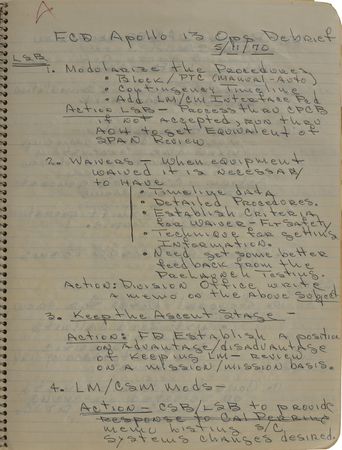 A
ECD Apollo 13 Ops Debrief
5/11/70
LSB
1. Modularize the Procedures
• Block/PTC (Manual-Auto)
• Contingency Timeline
• Add LM/CM Interface Pad
Action LSB - Process thru CPCB
if not accepted, run thru
AOH to get equivalent of
SPAN Review
2. Waivers - When equipment
waived it is necessary
to have
• Timeline data
• Detailed Procedures.
• Establish Criteria
for Waiver - Flt Safety
• Technique for getting
Information.
• Need get some better
feedback from the
Prelaunch Testing.
Action: Division Office write
a memo on the above subject
3. Keep the Ascent Stage -
Action: FD Establish a position
on advantage/disadvantage
of keeping LM - review
on a mission/mission basis.
4. LM/CSM Mods -
Action - CSB/LSB to provide
response to Cal Perrine
memo listing S/C
systems changes desired.